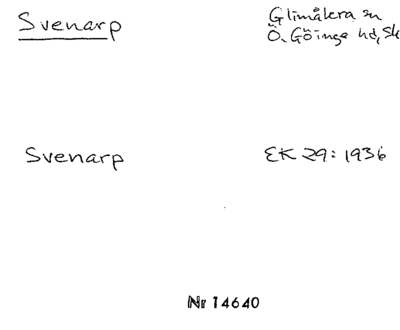 Svenarp
Glimåkra sn
Ö. Göinge hd, Sk
Svenarp
EK 29: 1936
Nr 14640